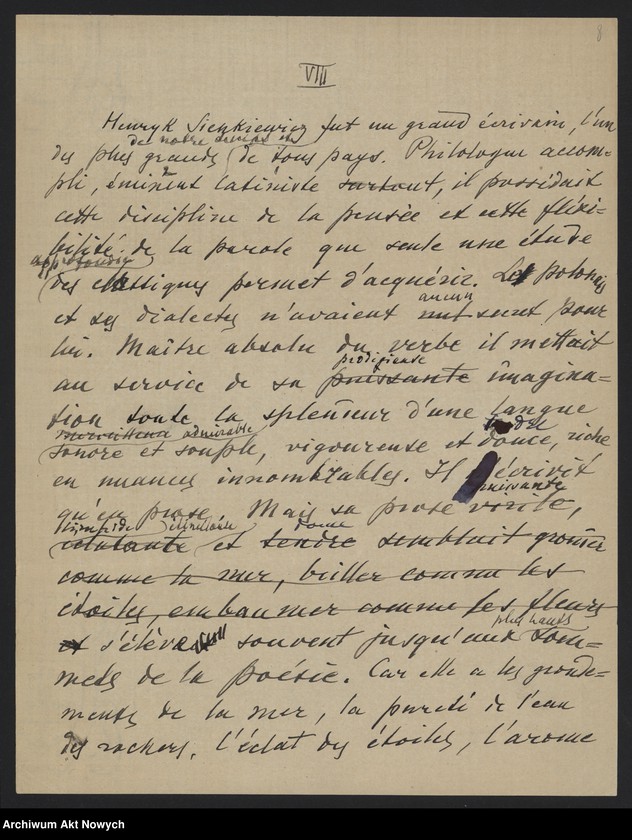 8
VIII
Henryk Sienkiewicz fut un grand écrivain, l'un
de notre
des plus grands de tous pays. Philologue accom-
pli, éminent latiniste surtout, il possédait
cette discipline de la pensée et cette flexi-
bilité de la parole que seule une étude
approfondie
des classiques permet d'acquérir. Le polonais
aucun
et ses dialectes n'avaient nul secret pour
lui. Maître absolu du verbe il mettait
prodigieuse
au service de sa puissante imagina-
tion toute la splendeur d'une langue
merveilleuse admirable tendre
sonore et souple, vigoureuse et douce, riche
en nuances innombrables. Il écrivit
puissante
qu'en prose. Mais sa prose virile,
limpide étincelante douce
éclatante et tendre semblait gronder
comme la mer, briller comme les
étoiles, embaumer comme les fleurs
plus hauts
et s'élève souvent jusqu'aux som-
mets de la poésie. Car elle a les gronde-
ments de la mer, la pureté de l'eau
des rochers, l'éclat des étoiles, l'arome
Archiwum Akt Nowych